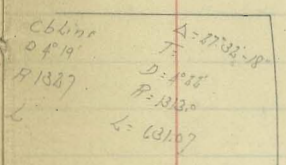 C b Line
D 4° 19'
R 1327
L
Δ = 27° 33' - 18"
T =
D = 4° 22'
R = 1313.0
L = 631.07